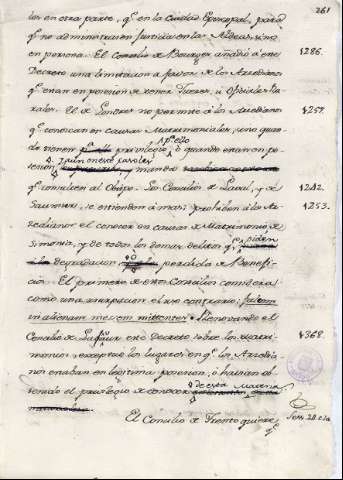 261
les en otra parte, qe en la Ciudad Episcopal, para
qe no administren Justicia en las Aldeas, sino
en persona. El Concilio de Bourges añadió á este 1286.
Decreto una limitacion á favor de los Arcedianos
qe estan en posesion de tener Fueros, u Oficiales Ru
rales. El de Londres no permite á los Arcedianos 1257.
qe conozcan en causas Matrimoniales, sino quan-
do tienen privilegio, ó quando estan en po-
sesion, y mandó
qe consulten al Obispo. Los Concilios de Laval, y de 1242.
Saumur, se estienden á mas: prohiben á los Ar- 1253.
cedianos el conocer en causas de Matrimonio, de
Simonia, y de todos los demas delitos qe piden
la degradacion ó perdida de Benefi-
cio. El primero de estos Concilios considera
como una usurpacion el uso contrario, falcem
in alienam messem mittentes. Renovando el
Concilio de Lavaur este Decreto sobre los Matri- 1368.
monios, exceptua los lugares en qe los Arcedia
nos estaban en legitima posesion, ó habian ob-
tenido el privilegio de conocer de esta materia
El Concilio de Trento quiere Sess. 24. c. 20
qe